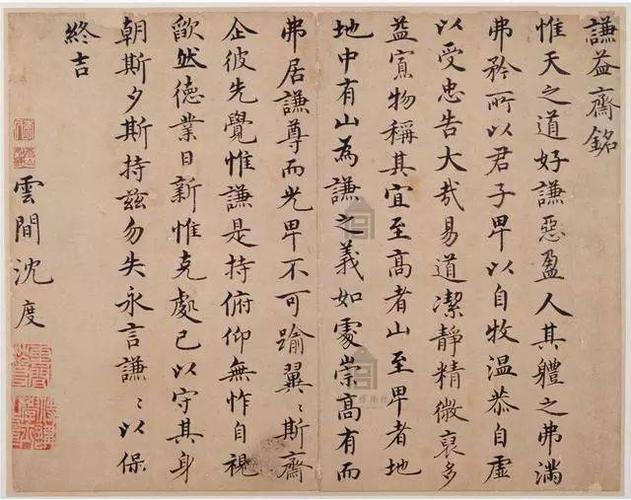 謙益齋銘
惟天之道好謙惡盈人其軆之弗滿
弗矜所以君子卑以自牧温恭自虛
以受忠告大哉易道潔靜精微裒多
益寡物稱其宜至高者山至卑者地
地中有山為謙之義如處崇高有而
弗居謙尊而光卑不可踰翼〻斯齋
企彼先覺惟謙是持俯仰無怍自視
欿然德業日新惟克處己以守其身
朝斯夕斯持茲勿失永言謙〻以保
終吉
雲間沈度